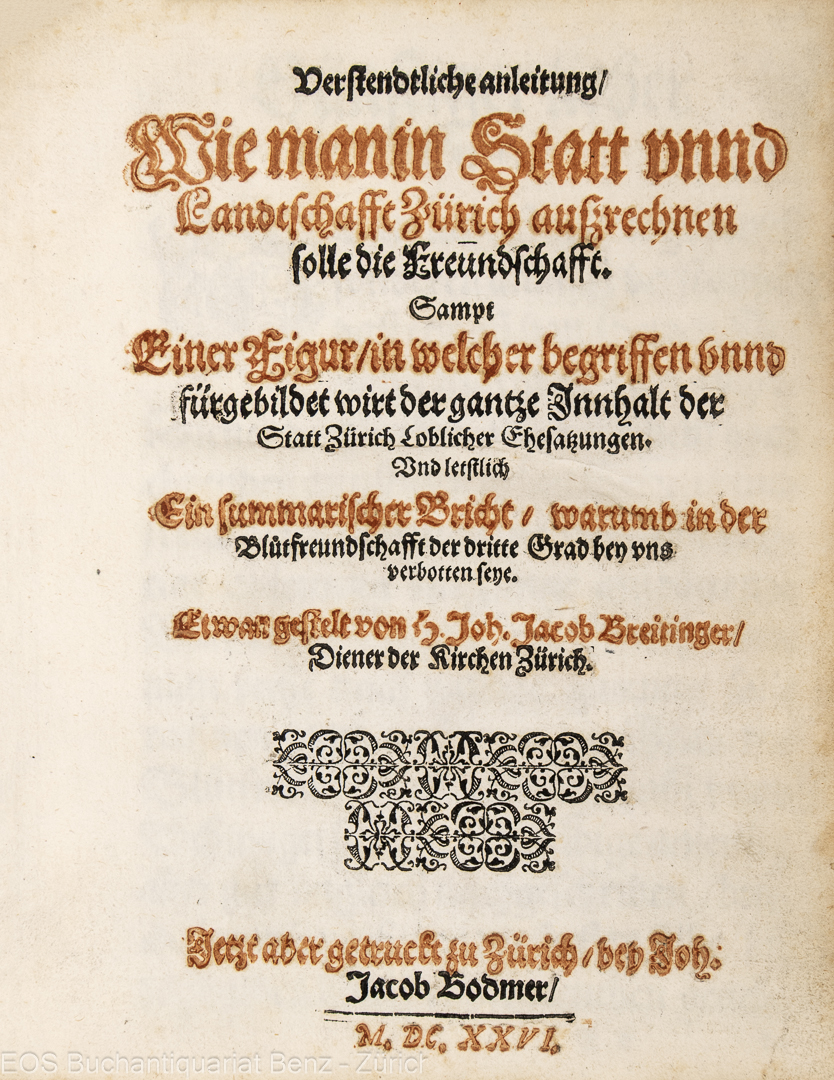 Verstendtliche anleitung/
Wie man in Statt vnnd
Landtschafft Zürich außrechnen
solle die Freün̄dschafft.
Sampt
Einer Figur/ in welcher begriffen vnnd
fürgebildet wirt der gantze Innhalt der
Statt Zürich Loblicher Ehesatzungen.
Vnd letstlich
Ein summarischer Bricht/ warumb in der
Blůtfreundschafft der dritte Grad bey vns
verbotten seye.
Etwan gestelt von H. Joh. Jacob Breitinger/
Diener der Kirchen Zürich.
Jetzt aber getruckt zu Zürich/ bey Joh.
Jacob Bodmer/
M. DC. XXVI.
EOS Buchantiquariat Benz - Zürich